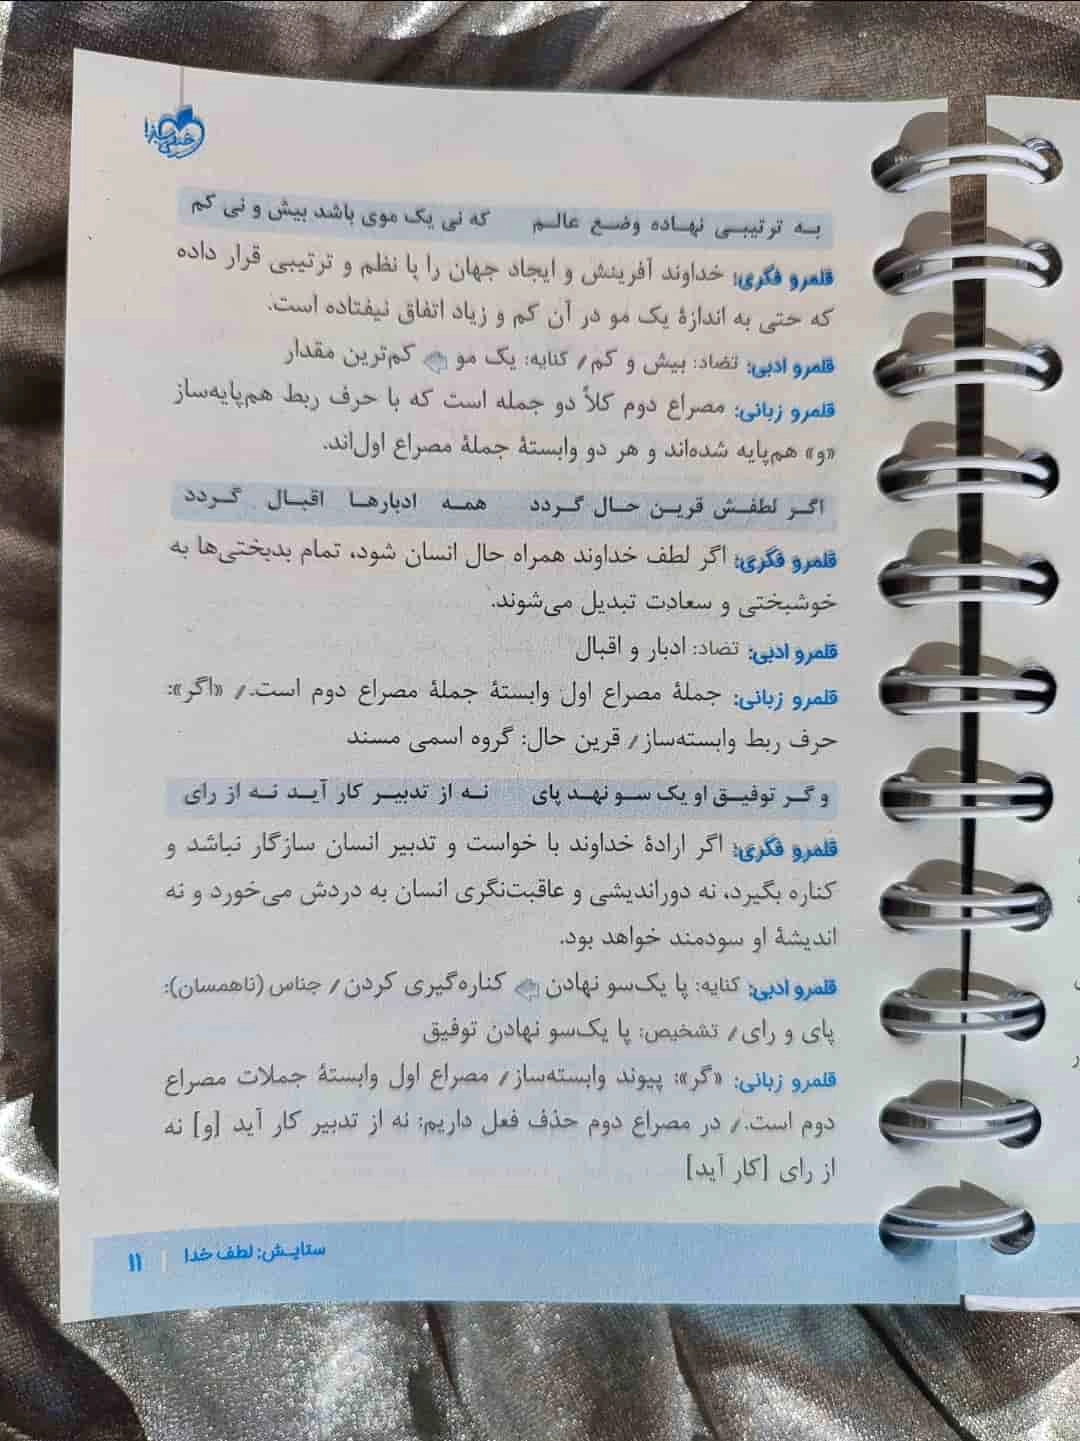 خیلی سبز!
به ترتیبی نهاده وضع عالم که نی یک موی باشد بیش و نی کم
قلمرو فکری: خداوند آفرینش و ایجاد جهان را با نظم و ترتیبی قرار داده
که حتی به اندازهٔ یک مو در آن کم و زیاد اتفاق نیفتاده است.
قلمرو ادبی: تضاد: بیش و کم / کنایه: یک مو ⇦ کم‌ترین مقدار
قلمرو زبانی: مصراع دوم کلاً دو جمله است که با حرف ربط هم‌پایه‌ساز
«و» هم‌پایه شده‌اند و هر دو وابستهٔ جملهٔ مصراع اول‌اند.
اگر لطفش قرین حال گردد همه ادبارها اقبال گردد
قلمرو فکری: اگر لطف خداوند همراه حال انسان شود، تمام بدبختی‌ها به
خوشبختی و سعادت تبدیل می‌شوند.
قلمرو ادبی: تضاد: ادبار و اقبال
قلمرو زبانی: جملهٔ مصراع اول وابستهٔ جملهٔ مصراع دوم است. / «اگر»:
حرف ربط وابسته‌ساز / قرین حال: گروه اسمی مسند
و گر توفیق او یک سو نهد پای نه از تدبیر کار آید نه از رای
قلمرو فکری: اگر ارادهٔ خداوند با خواست و تدبیر انسان سازگار نباشد و
کناره بگیرد، نه دوراندیشی و عاقبت‌نگری انسان به دردش می‌خورد و نه
اندیشهٔ او سودمند خواهد بود.
قلمرو ادبی: کنایه: پا یک‌سو نهادن ⇦ کناره‌گیری کردن / جناس (ناهمسان):
پای و رای / تشخیص: پا یک‌سو نهادن توفیق
قلمرو زبانی: «گر»: پیوند وابسته‌ساز / مصراع اول وابستهٔ جملات مصراع
دوم است. / در مصراع دوم حذف فعل داریم: نه از تدبیر کار آید [و] نه
از رای [کار آید]
ستایش: لطف خدا | ۱۱